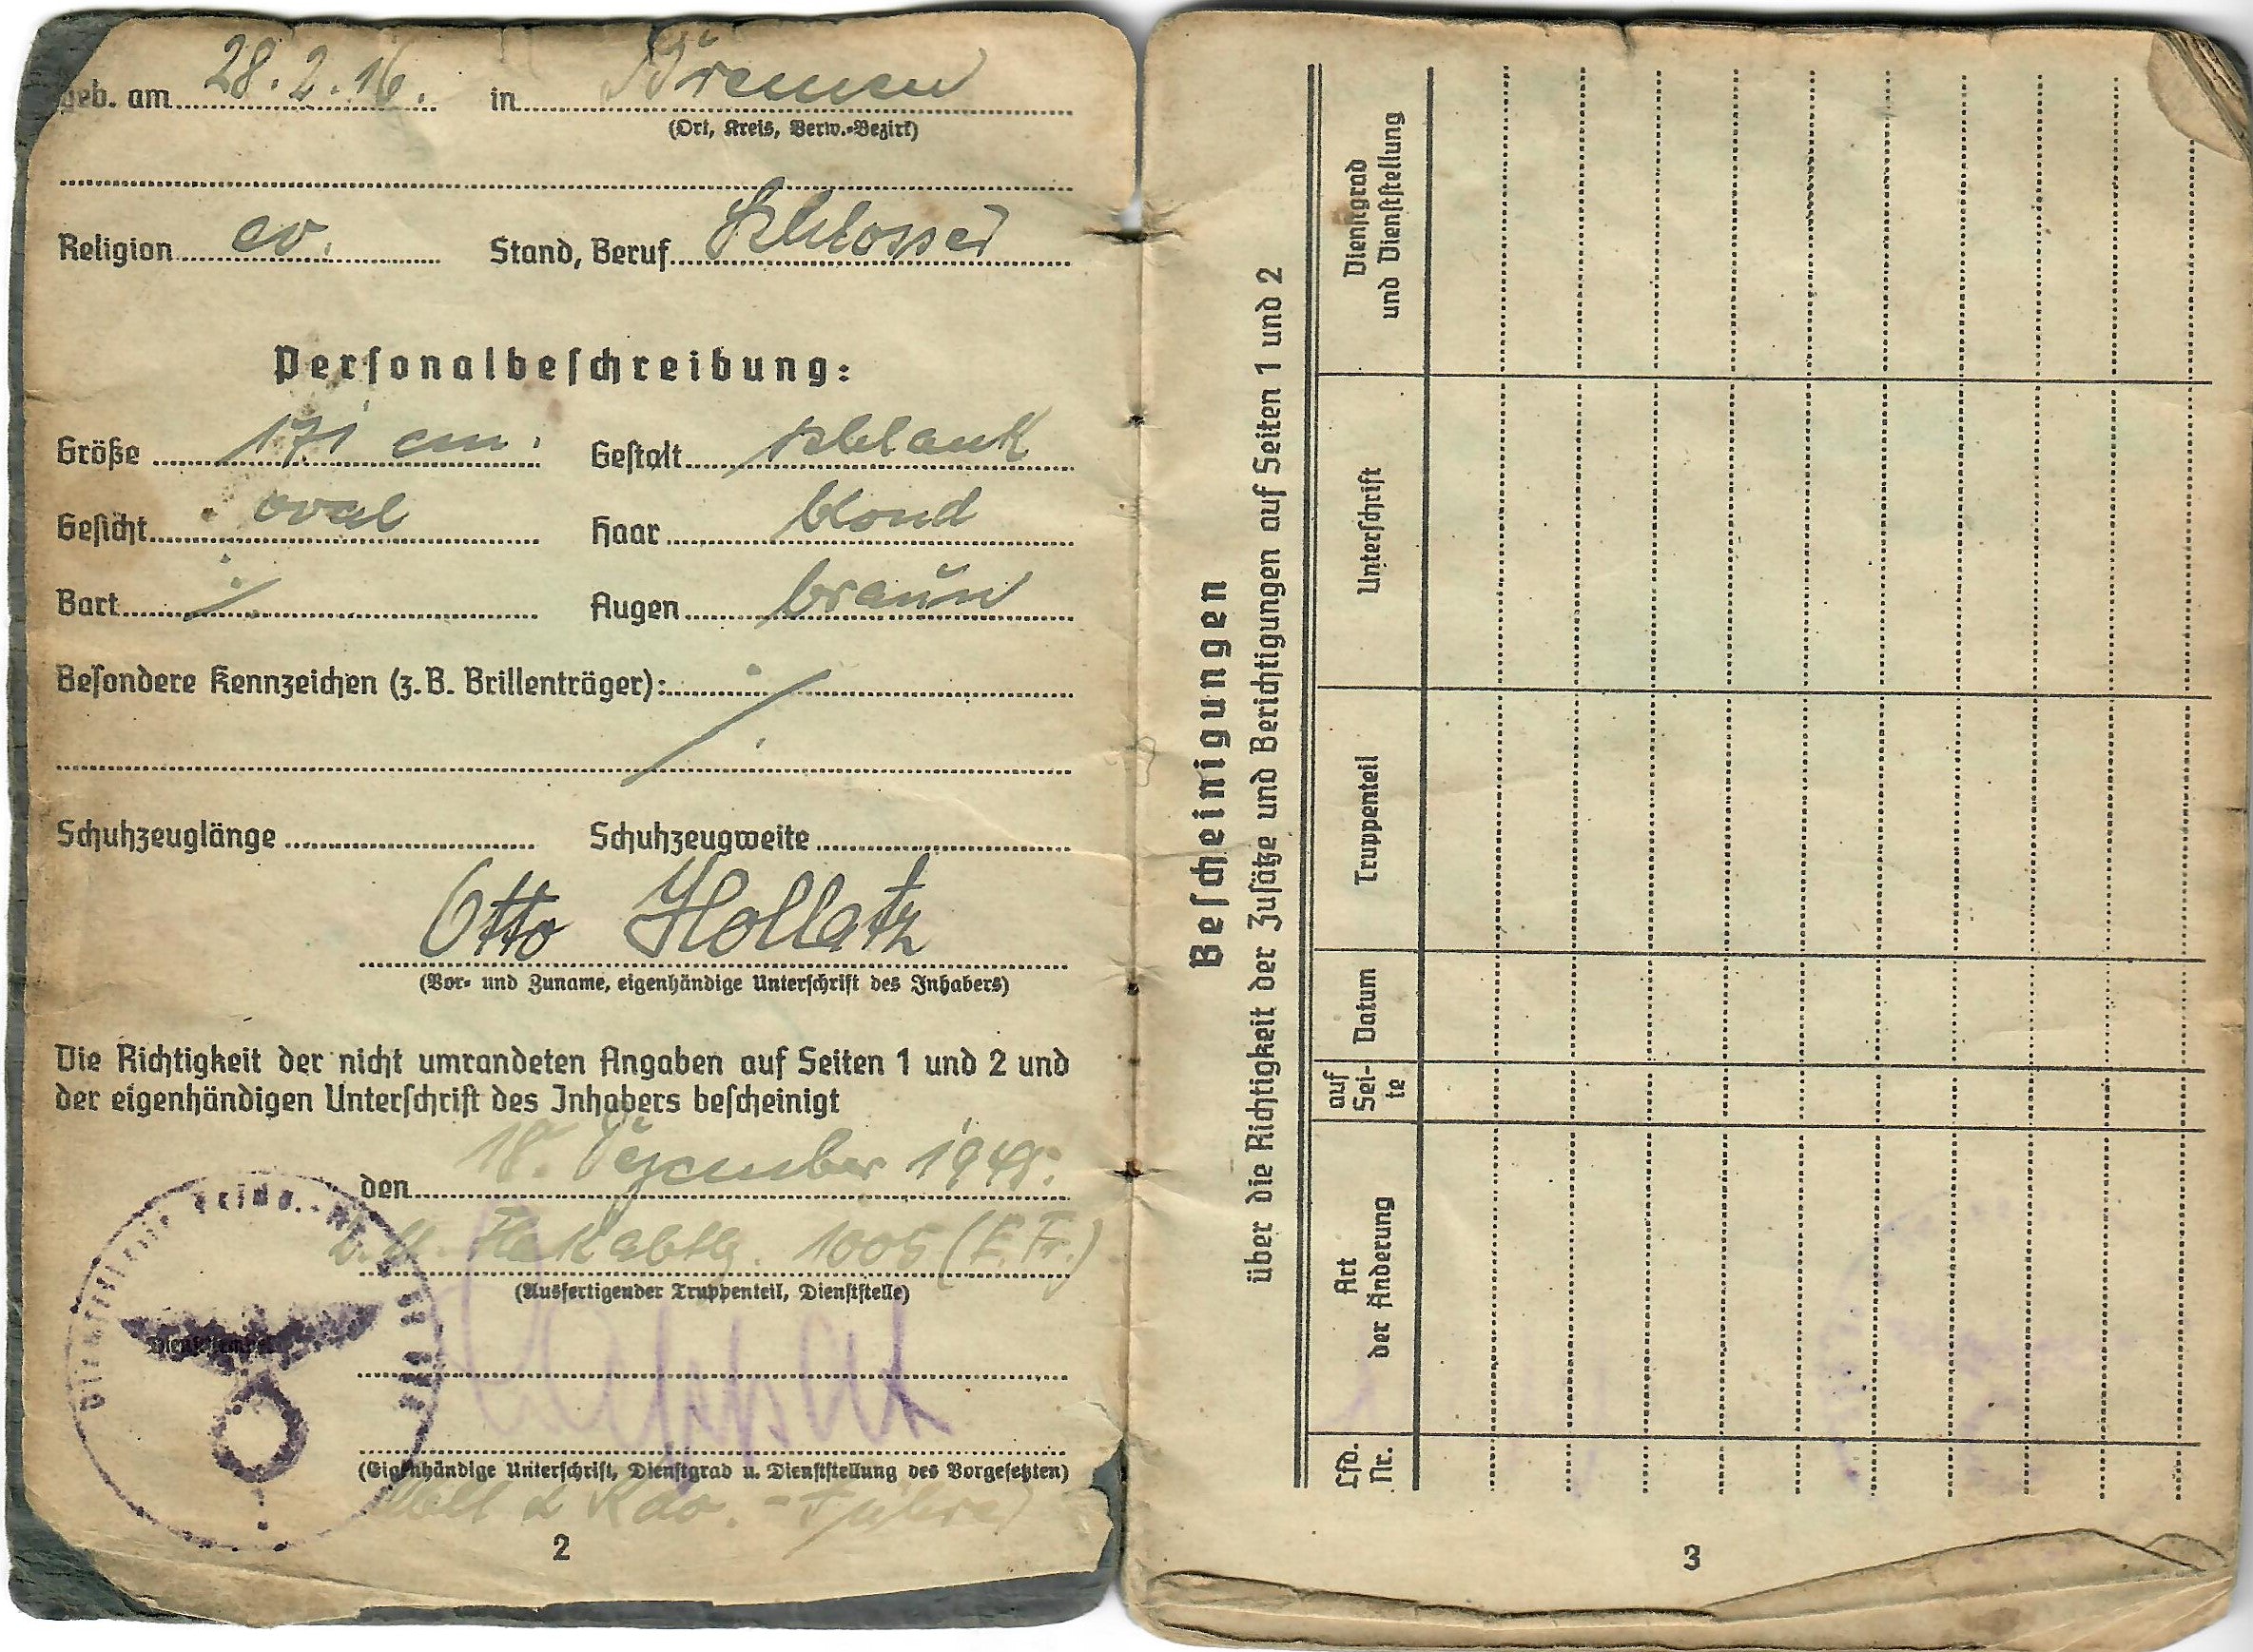 geb. am 28.2.16. in Bremen
(Ort, Kreis, Verw.-Bezirk)
Religion ev. Stand, Beruf Schlosser
Personalbeschreibung:
Größe 171 cm. Gestalt schlank
Gesicht oval Haar blond
Bart ./. Augen braun
Besondere Kennzeichen (z. B. Brillenträger): ./.
Schuhzeuglänge Schuhzeugweite
Otto Hollatz
(Vor- und Zuname, eigenhändige Unterschrift des Inhabers)
Die Richtigkeit der nicht umrandeten Angaben auf Seiten 1 und 2 und
der eigenhändigen Unterschrift des Inhabers bescheinigt
den 18. Dezember
Flakabtlg. 1005 (E. Tr.)
(Ausfertigender Truppenteil, Dienststelle)
Dienststempel
(Eigenhändige Unterschrift, Dienstgrad u. Dienststellung des Vorgesetzten)
-Führer
2
Bescheinigungen
über die Richtigkeit der Zusätze und Berichtigungen auf Seiten 1 und 2
Lfd. Nr.
Art der Änderung
auf Sei-te
Datum
Truppenteil
Unterschrift
Dienstgrad und Dienststellung
3